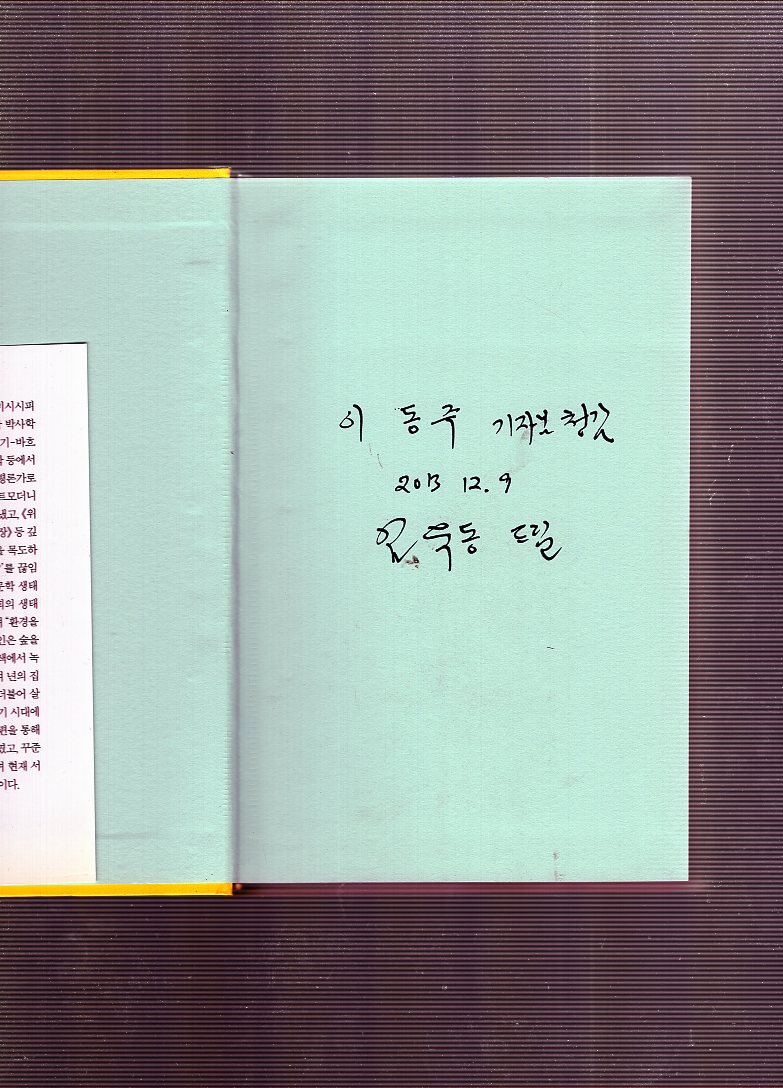 미시시피
박사학
기-바흐
등에서
평론가로
트모더니
냈고, 《위
장》 등 깊
을 목도하
'를 끊임
문학 생태
의 생태
“환경을
인은 숲을
색에서 녹
년의 집
더불어 살
기 시대에
편을 통해
였고, 꾸준
며 현재 서
이다.
이 동주 기자님 청람
2013 12. 9
김욱동 드림